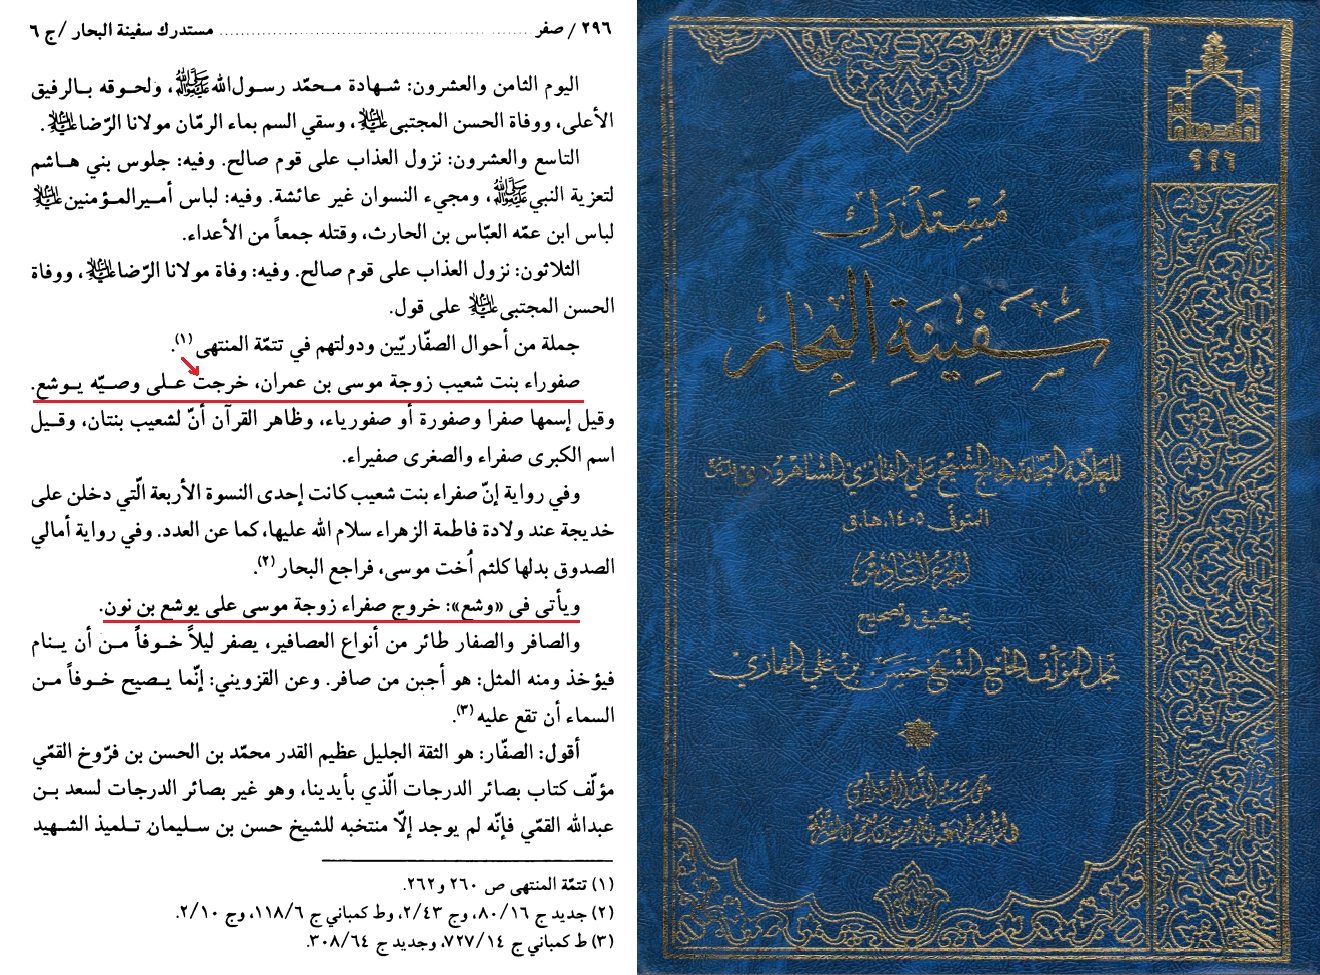 ٢٩٦ / صفر ........................................ مستدرك سفينة البحار /ج ٦
اليوم الثامن والعشرون: شـهادة مـحمّد رسـول‌الله ﷺ، ولحـوقه بـالرفيق
الأعلى، ووفاة الحسن المجتبى عليه السلام، وسقي السم بماء الرمّان مولانا الرّضا عليه السلام.
التاسع والعشرون: نزول العذاب على قوم صالح. وفيه: جلوس بني هـاشم
لتعزية النبي ﷺ، ومجيء النسوان غير عائشة. وفيه: لباس أمـيرالمـؤمنين عليه السلام
لباس ابن عمّه العبّاس بن الحارث، وقتله جمعاً من الأعداء.
الثلاثون: نزول العذاب على قوم صالح. وفيه: وفاة مولانا الرّضا عليه السلام، ووفاة
الحسن المجتبى عليه السلام على قول.
جملة من أحوال الصفّاريّين ودولتهم في تتمّة المنتهى (١).
صفوراء بنت شعيب زوجة موسى بن عمران، خرجت عـلى وصـيّه يـوشع.
وقيل إسمها صفرا وصفورة أو صفورياء، وظاهر القرآن أنّ لشعيب بنتان، وقـيل
اسم الكبرى صفراء والصغرى صفيراء.
وفي رواية إنّ صفراء بنت شعيب كانت إحدى النسوة الأربعة الّتي دخلن على
خديجة عند ولادة فاطمة الزهراء سلام الله عليها، كما عن العدد. وفي رواية أمالي
الصدوق بدلها كلثم أُخت موسى، فراجع البحار (٢).
ويأتى فى «وشع»: خروج صفراء زوجة موسى على يوشع بن نون.
والصافر والصفار طائر من أنواع العصافير، يصفر ليلاً خـوفاً مـن أن يـنام
فيؤخذ ومنه المثل: هو أجبن من صافر. وعن القزويني: إنّما يـصيح خـوفاً مـن
السماء أن تقع عليه (٣).
أقول: الصفّار: هو الثقة الجليل عظيم القدر محمّد بن الحسن بن فرّوخ القمّي
مؤلّف كتاب بصائر الدرجات الّذي بأيدينا، وهو غير بصائر الدرجات لسعد بـن
عبدالله القمّي فإنّه لم يوجد إلّا منتخبه للشيخ حسن بن سـليمان تـلميذ الشـهيد
(١) تتمّة المنتهى ص ٢٦٠ و٢٦٢.
(٢) جديد ج ٨٠/١٦، وج ٢/٤٣، وط كمباني ج ١١٨/٦، وج ٢/١٠.
(٣) ط كمباني ج ٧٢٧/١٤، وجديد ج ٣٠٨/٦٤.
٩٩٦
مُسْتَدْرَك
سَفِينَةِ البِحَار
للعلّامة البحّاثة الحاج الشيخ علي النمازي الشاهرودي
المتوفّى ١٤٠٥ ه.ق
الجزء السادس
بتحقيق وتصحيح
نجل المؤلف الحاج الشيخ حسن بن علي النمازي
مؤسسة النشر الإسلامي